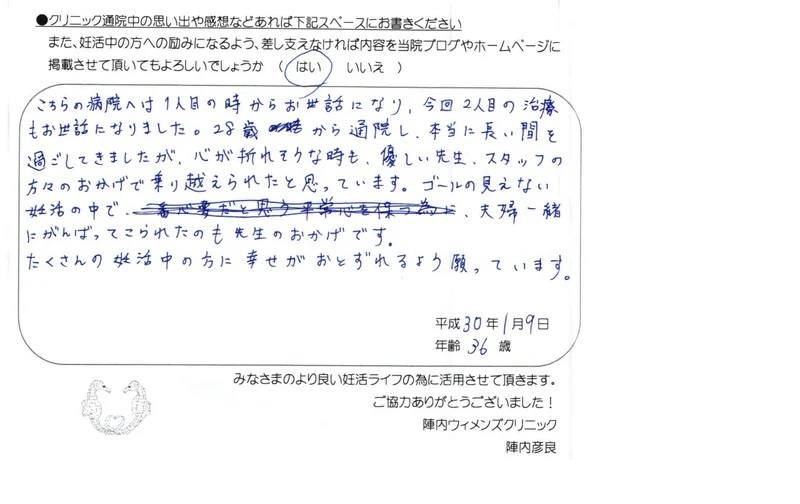 ●クリニック通院中の思い出や感想などあれば下記スペースにお書きください
また、妊活中の方への励みになるよう、差し支えなければ内容を当院ブログやホームページに
掲載させて頂いてもよろしいでしょうか ( はい いいえ )
こちらの病院へは1人目の時からお世話になり、今回2人目の治療
もお世話になりました。28歳から通院し、本当に長い間を
過ごしてきましたが、心が折れそうな時も、優しい先生、スタッフの
方々のおかげで乗り越えられたと思っています。ゴールの見えない
妊活の中で、一番必要だと思う平常心を保つ為に、夫婦一緒
にがんばってこられたのも先生のおかげです。
たくさんの妊活中の方に幸せがおとずれるよう願っています。
平成30年1月9日
年齢 36 歳
みなさまのより良い妊活ライフの為に活用させて頂きます。
ご協力ありがとうございました！
陣内ウィメンズクリニック
陣内彦良